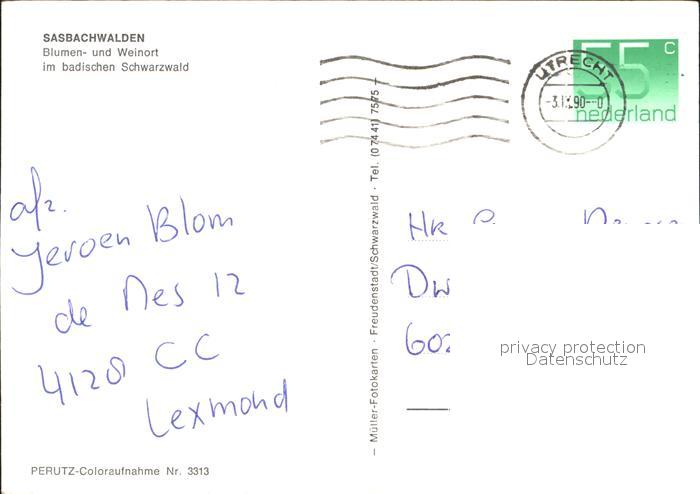 SASBACHWALDEN
Blumen- und Weinort
im badischen Schwarzwald
55 C
nederland
UTRECHT
afz.
Jeroen Blom
de Nes 12
4128 CC
Lexmond
PERUTZ-Coloraufnahme Nr. 3313
— Müller-Fotokarten · Freudenstadt/Schwarzwald · Tel. (07441) 7575 —
Hr
Dw
602
privacy protection
Datenschutz